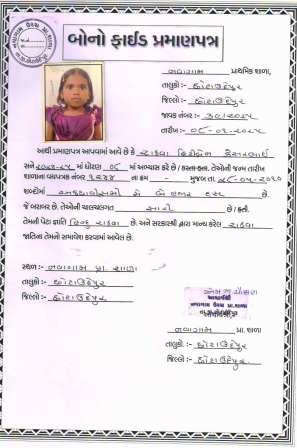 બોનો ફાઈડ પ્રમાણપત્ર
નવાગામ પ્રાથમિક શાળા,
તાલુકો :- છોટાઉદેપુર
જિલ્લો :- છોટાઉદેપુર
જાવક નંબર :-
તારીખ :- ૦૮-૦૨-૨૦૨૫
આથી પ્રમાણપત્ર આપવામાં આવે છે કે રાઠવા
સને ૨૦૨૪-૨૫ માં ધોરણ ૦૮ માં અભ્યાસ કરે છે / કરતા હતા. તેઓની જન્મ તારીખ
શાળાના વયપત્રક નંબર ૧૨૩૪ ના ક્રમ - મુજબ તા.
શબ્દોમાં બે હજાર દસ છે.
જે બરાબર છે. તેઓની ચાલચલગત સારી છે / હતી.
તેમની પેટા જ્ઞાતિ હિન્દુ રાઠવા છે. અને સરકારશ્રી દ્વારા માન્ય કરેલ રાઠવા
જાતિના તેમનો સમાવેશ કરવામાં આવેલ છે.
સ્થળ :- નવાગામ પ્રા. શાળા
તાલુકો :- છોટાઉદેપુર
જિલ્લો :- છોટાઉદેપુર
આચાર્યશ્રી
નવાગામ પ્રા. શાળા
તાલુકો :- છોટાઉદેપુર
જિલ્લો :- છોટાઉદેપુર.